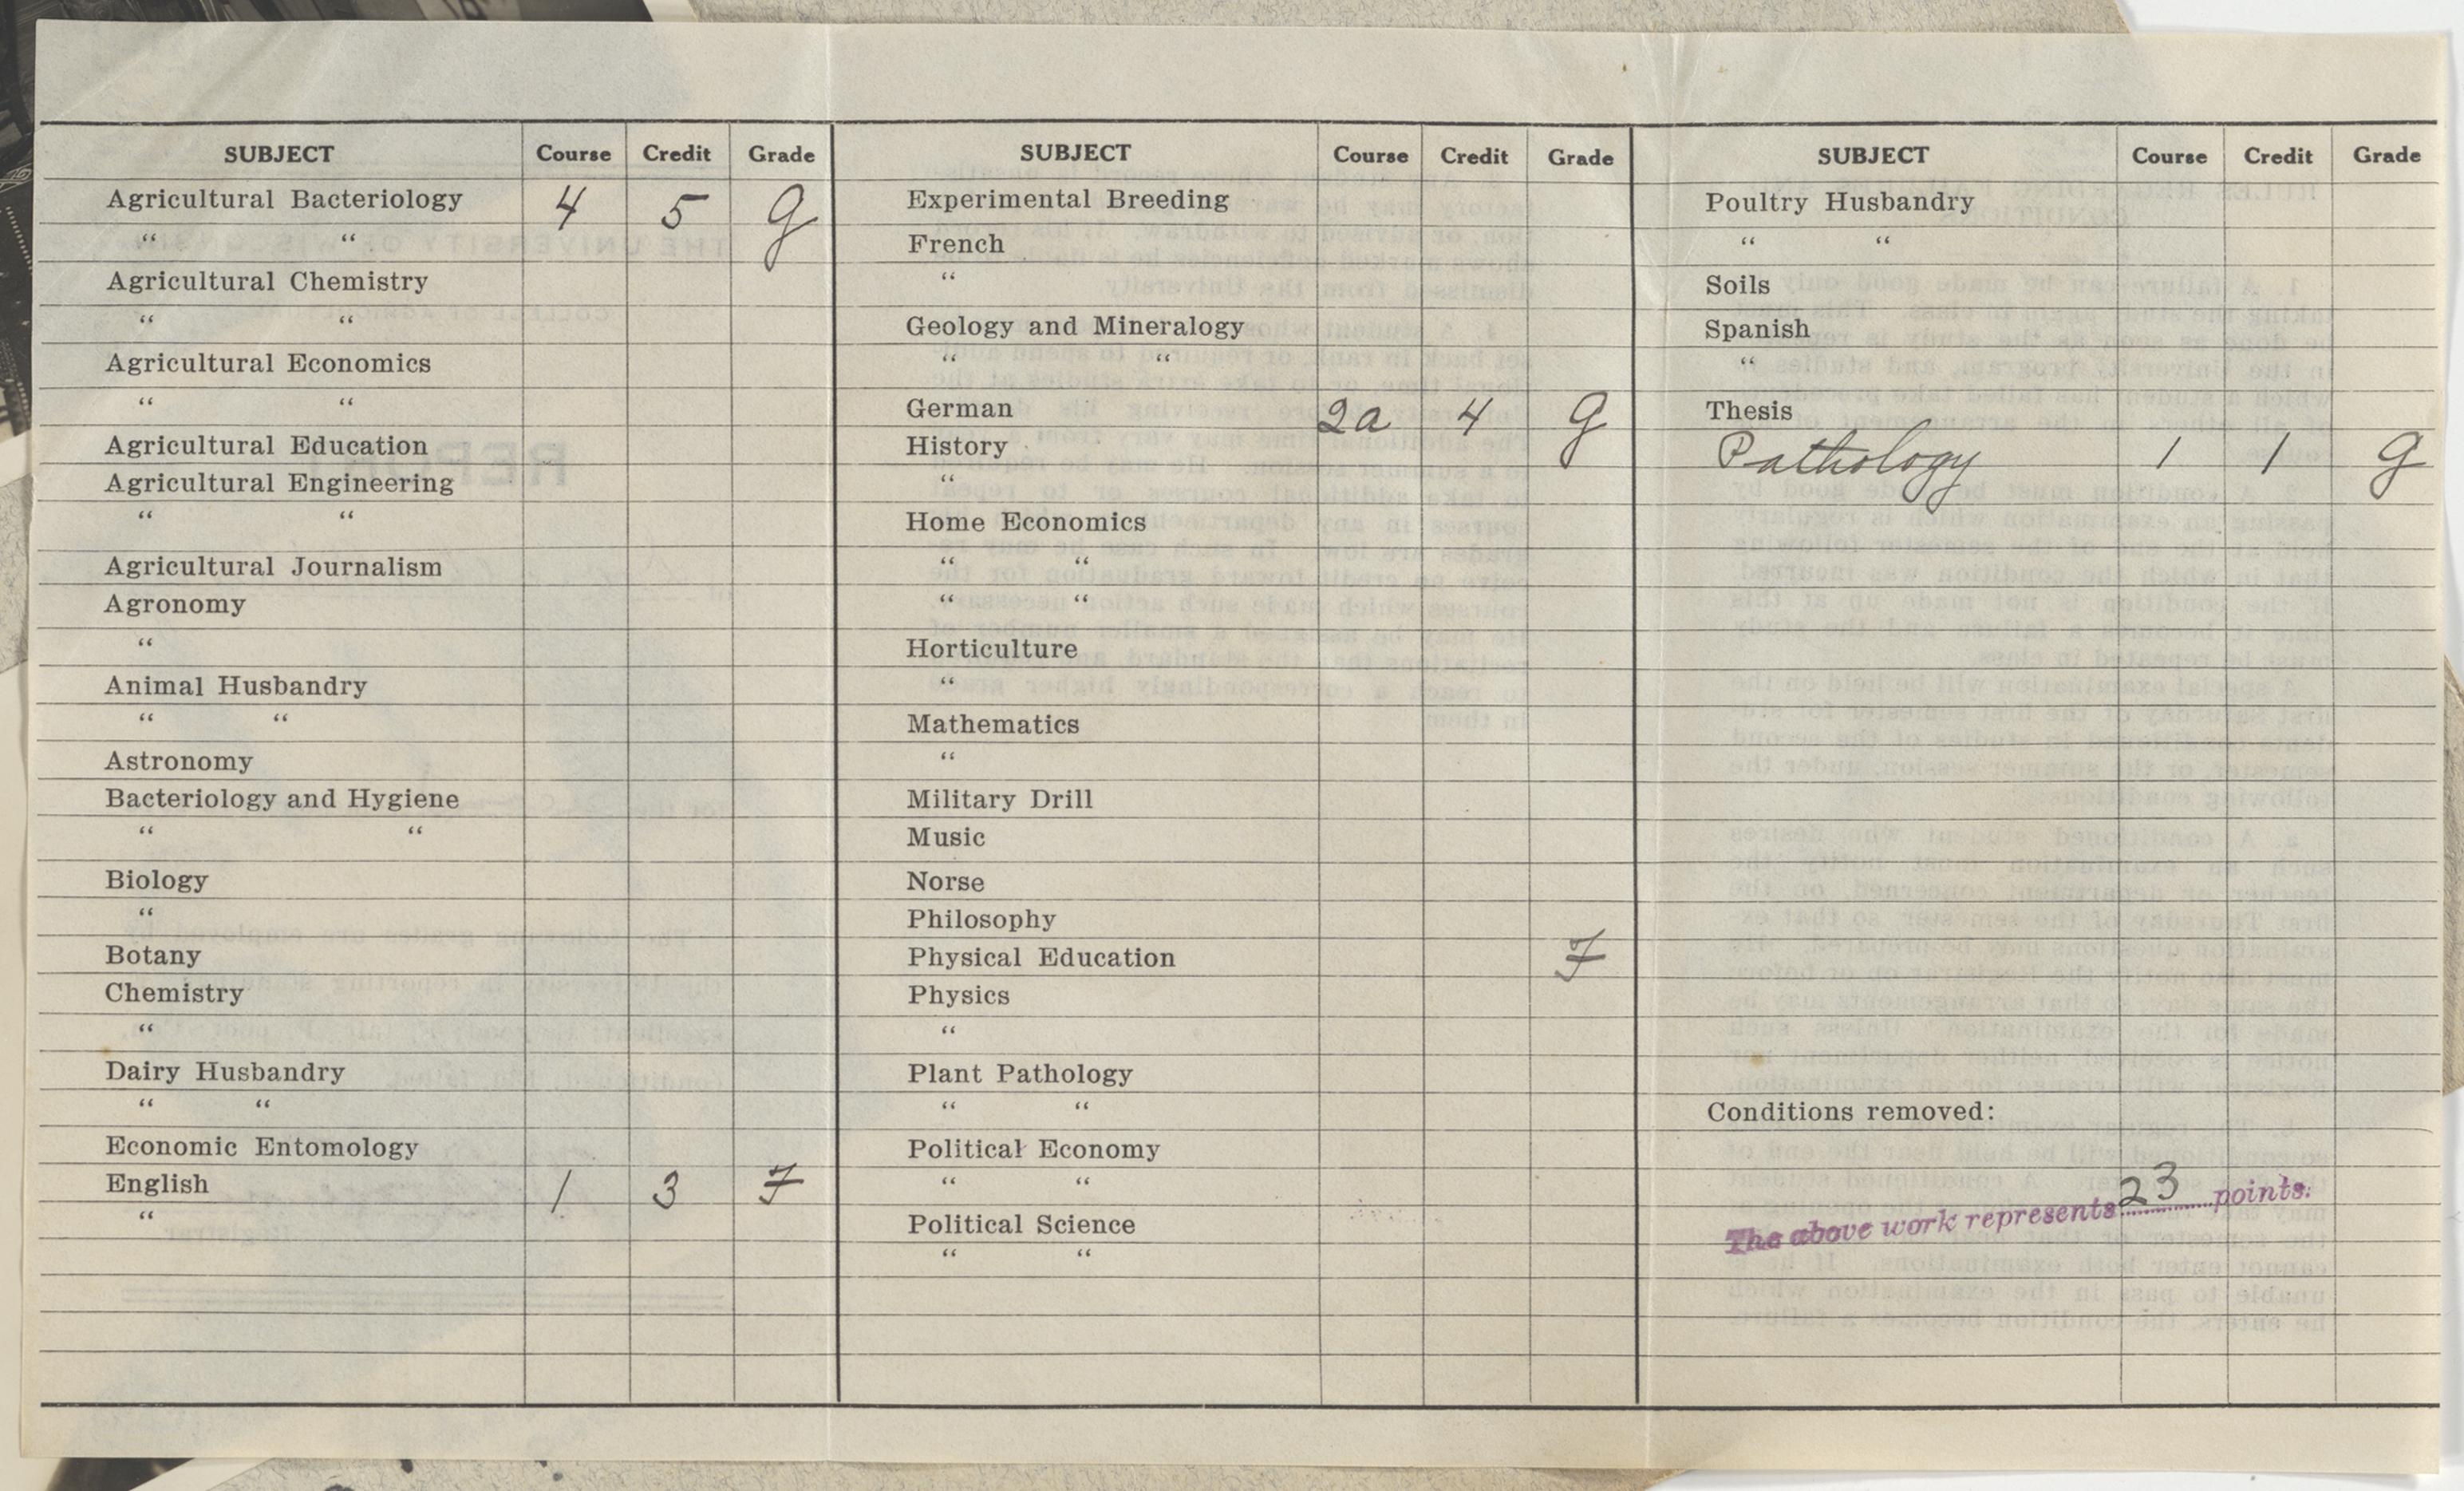 SUBJECT Course Credit Grade
Agricultural Bacteriology 4 5 G
“ “
Agricultural Chemistry
“ “
Agricultural Economics
“ “
Agricultural Education
Agricultural Engineering
“ “
Agricultural Journalism
Agronomy
“
Animal Husbandry
“ “
Astronomy
Bacteriology and Hygiene
“ “
Biology
“
Botany
Chemistry
“
Dairy Husbandry
“ “
Economic Entomology
English 1 3 F
“
SUBJECT Course Credit Grade
Experimental Breeding
French
“
Geology and Mineralogy
“ “
German 2a 4 G
History
“
Home Economics
“ “
“ “
Horticulture
“
Mathematics
“
Military Drill
Music
Norse
Philosophy
Physical Education F
Physics
“
Plant Pathology
“ “
Political Economy
“ “
Political Science
“ “
SUBJECT Course Credit Grade
Poultry Husbandry
“ “
Soils
Spanish
“
Thesis
Pathology 1 1 G
Conditions removed:
The above work represents 23 points.